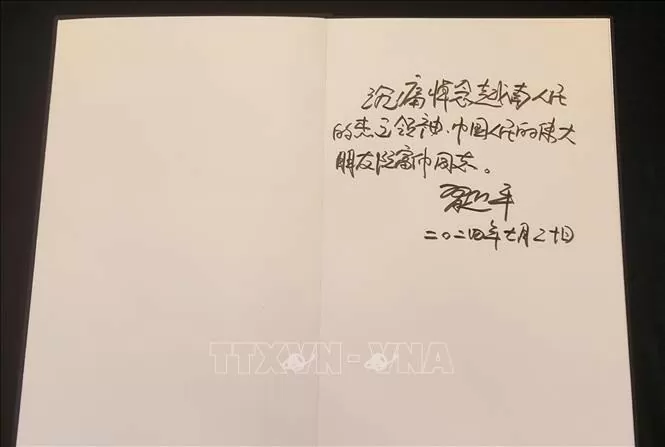 沉痛悼念越南人民
的杰出领袖、中国人民的伟大
朋友阮富仲同志。
习近平
二〇二四年七月二十日
TTXVN-VNA